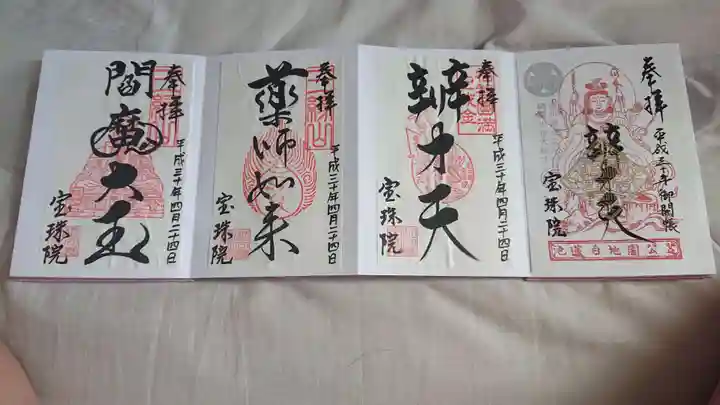 奉拝
平成三十年御開帳
宝珠院
芝公園地白蓮池
奉拝
辨才天
平成三十年四月二十四日
宝珠院
奉拝
薬師如来
平成三十年四月二十四日
宝珠院
奉拝
閻魔大王
平成三十年四月二十四日
宝珠院